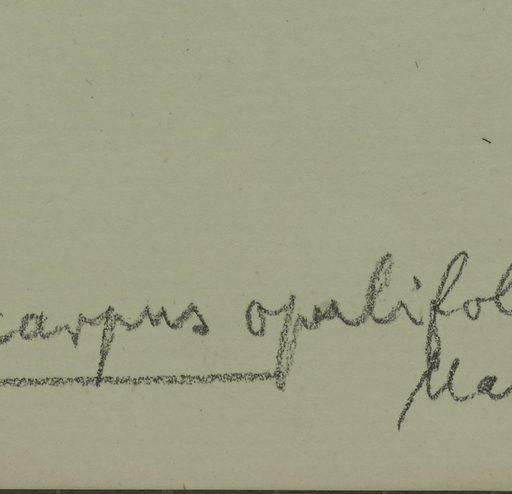 carpus opulifol
Ma